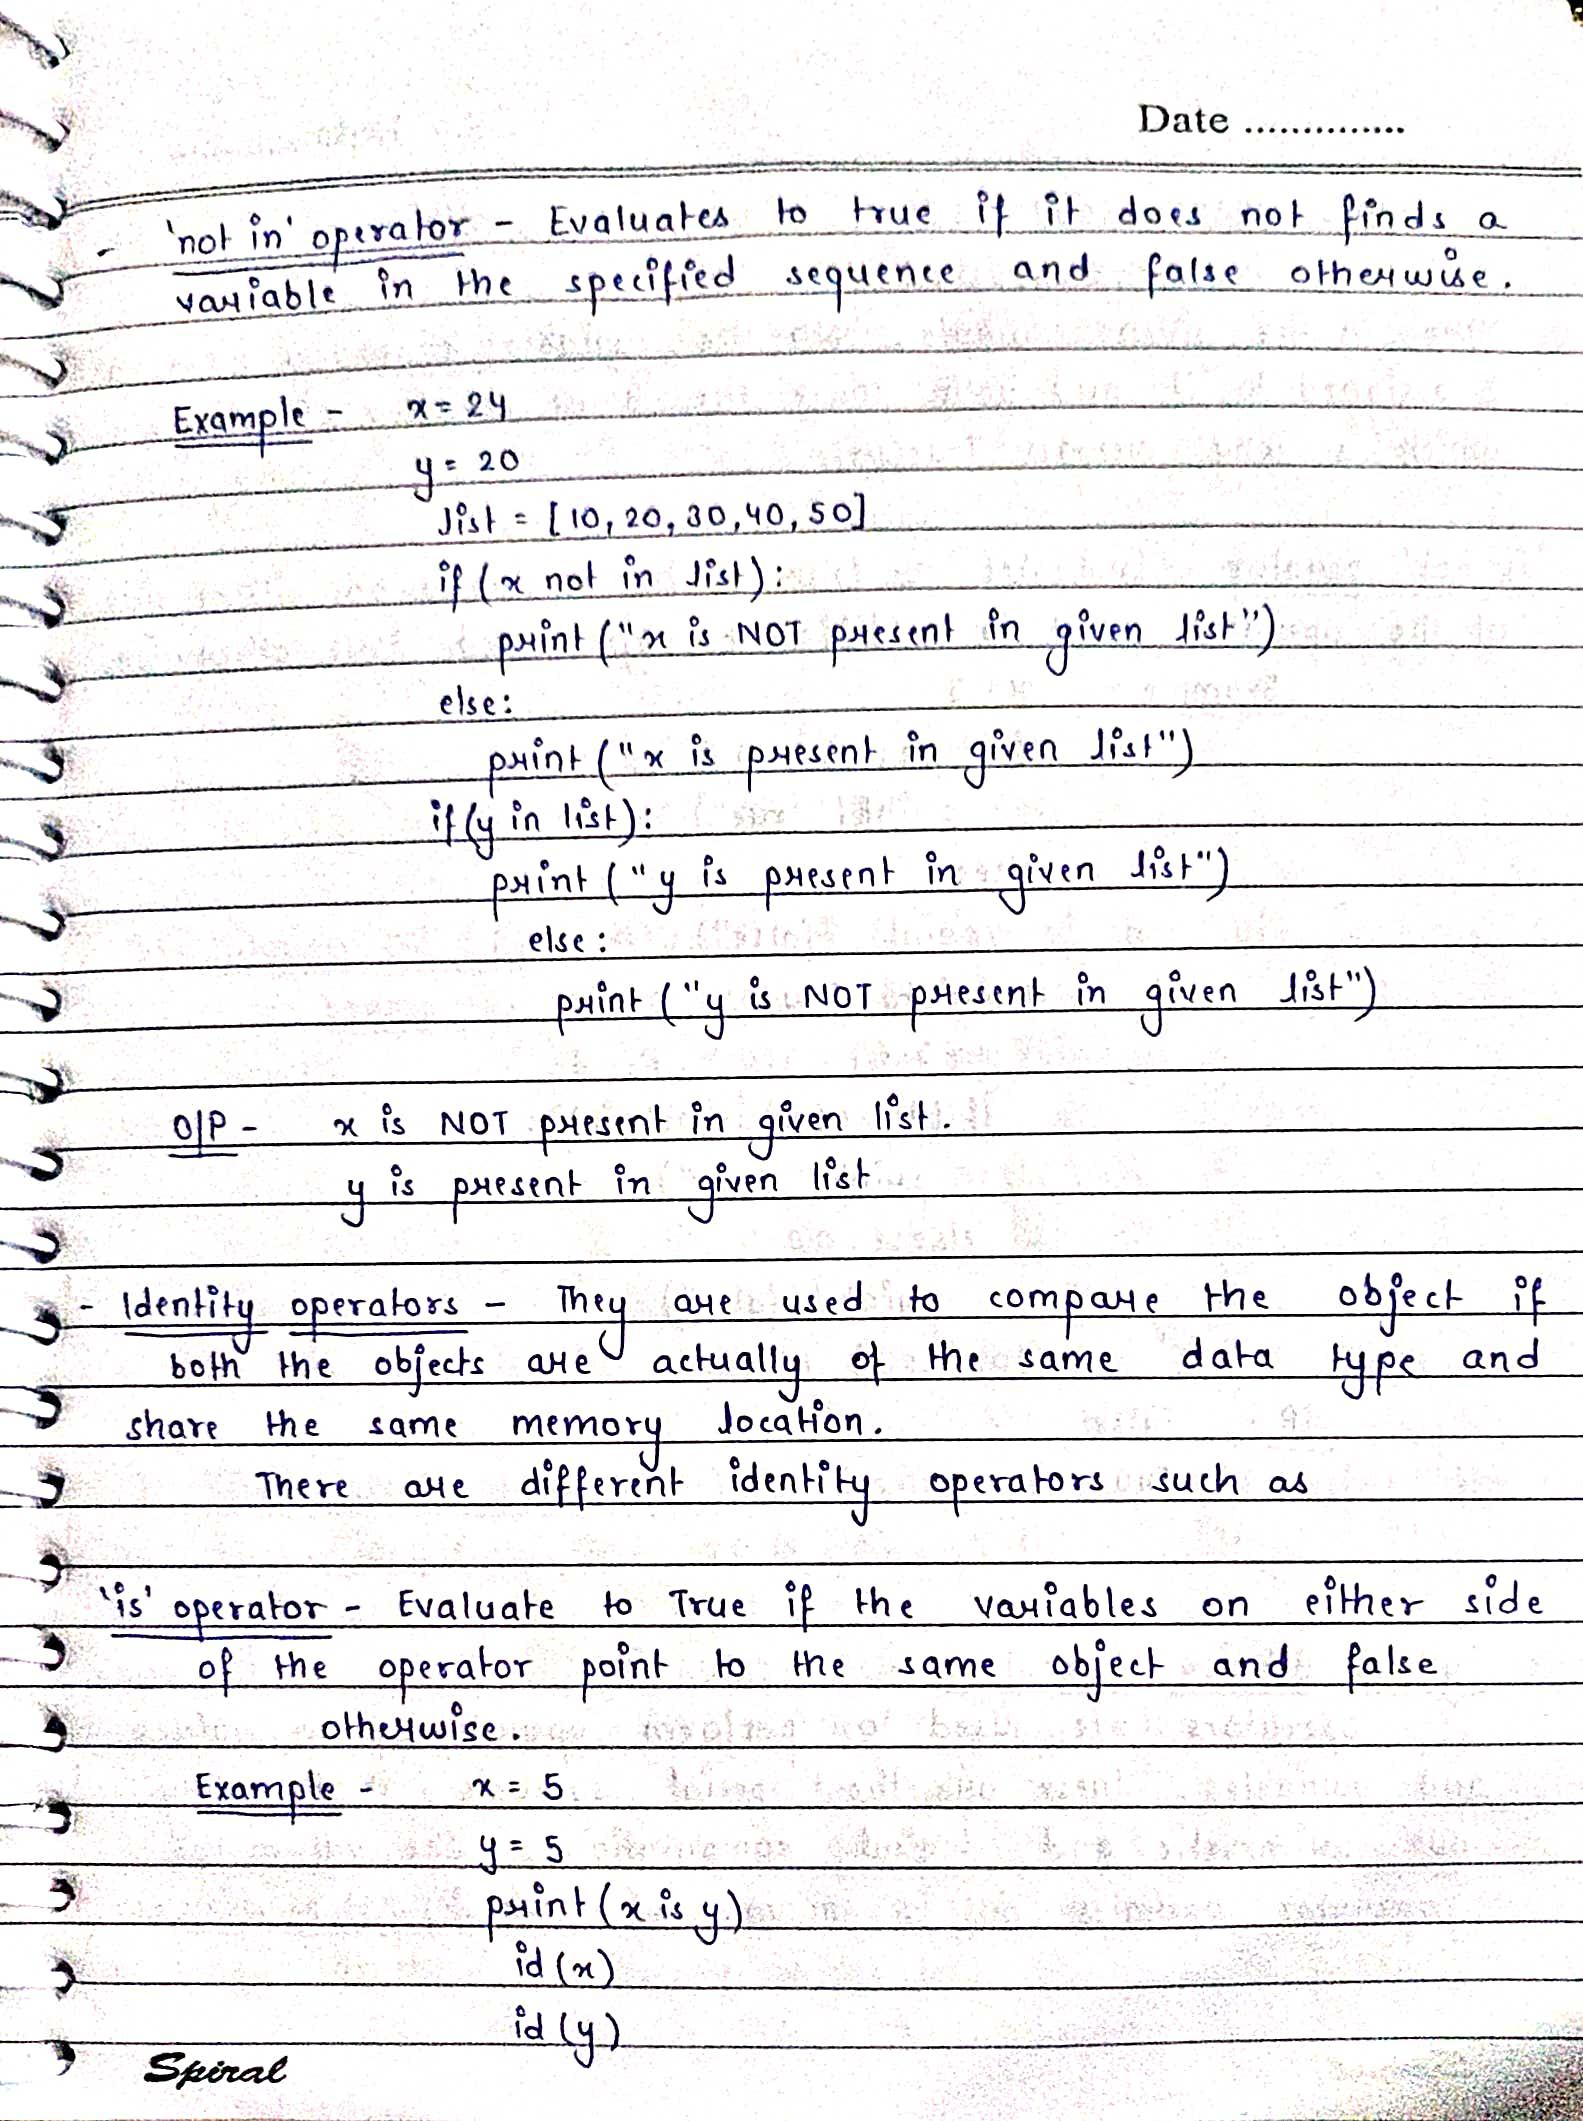 Date ..............
- 'not in' operator - Evaluates to true if it does not finds a
variable in the specified sequence and false otherwise.
Example - x = 24
y = 20
list = [10, 20, 30, 40, 50]
if (x not in list):
print ("x is NOT present in given list")
else:
print ("x is present in given list")
if (y in list):
print ("y is present in given list")
else:
print ("y is NOT present in given list")
O/P - x is NOT present in given list.
y is present in given list
- Identity operators - They are used to compare the object if
both the objects are actually of the same data type and
share the same memory location.
There are different identity operators such as
'is' operator - Evaluate to True if the variables on either side
of the operator point to the same object and false
otherwise.
Example - x = 5
y = 5
print (x is y)
id (x)
id (y)
Spiral